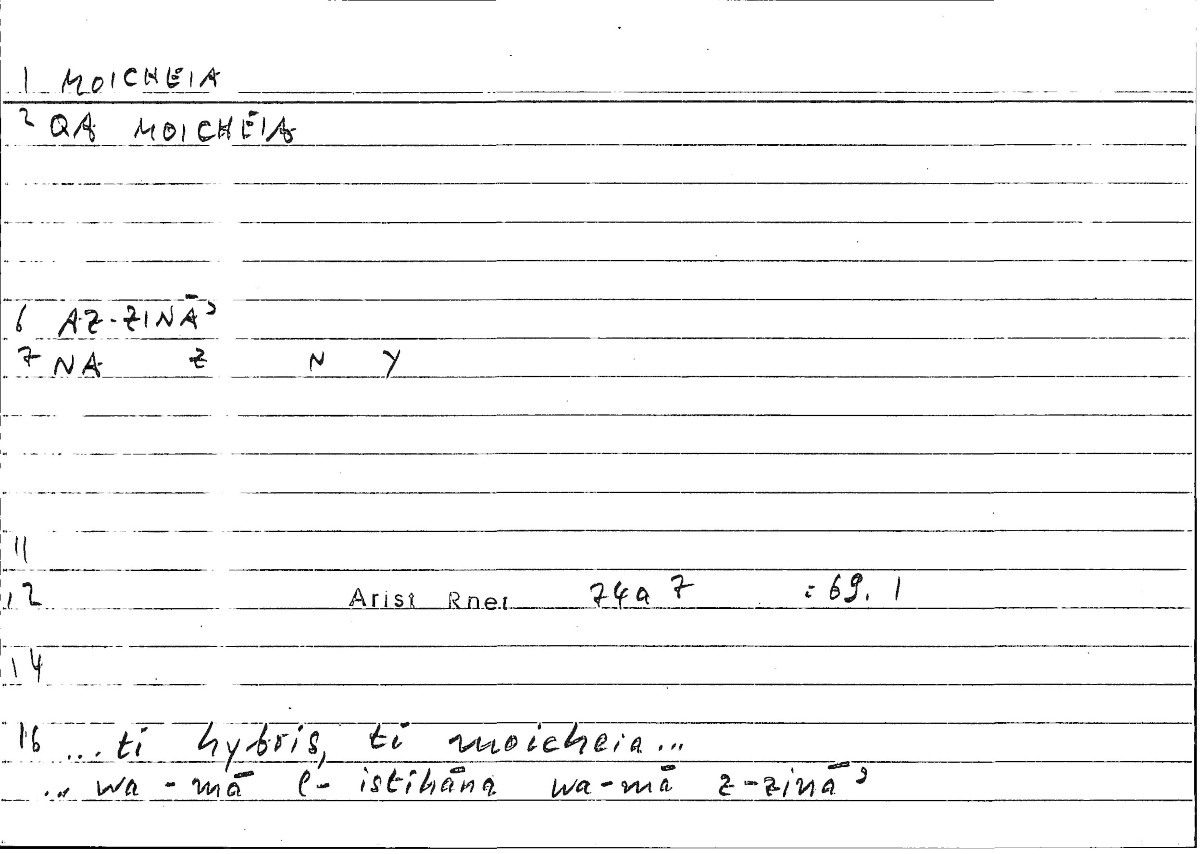 1 MOICHEIA
2 QA MOICHEIA
6 AZ-ZINĀʾ
7 NA Z N Y
11
12 Arist Rhet 74a7 : 69. 1
14
16 ...ti hybris, ti moicheia...
... wa-mā l-istihāna wa-mā z-zināʾ